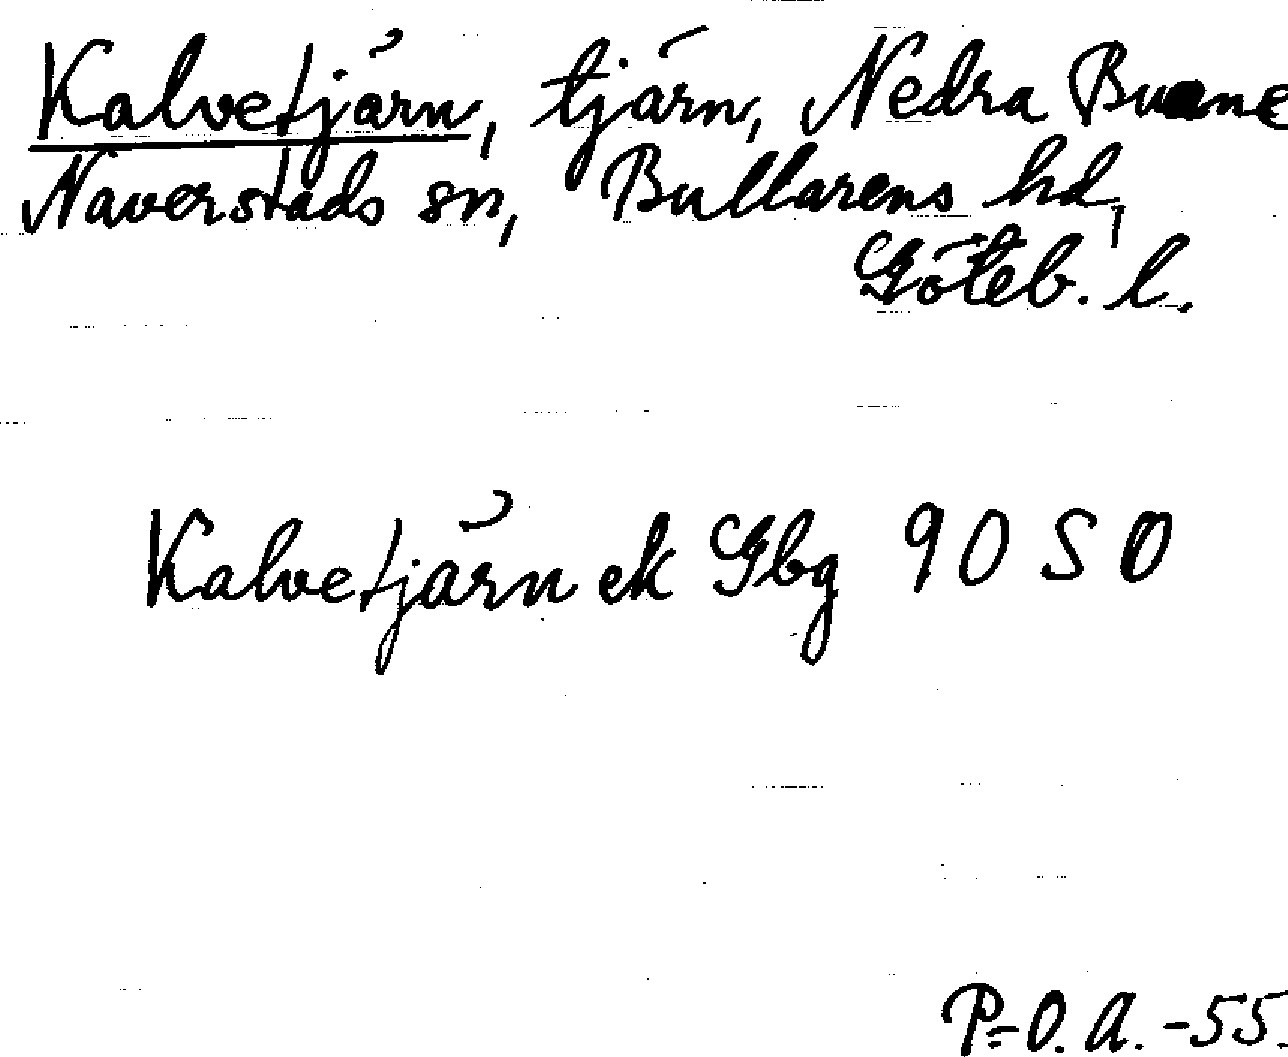 Kalvetjärn, tjärn, Nedra Buane
Naverstads sn, Bullarens hd,
Göteb. l.
Kalvetjärn ek Gbg 90 SO
P-O. A. -55.